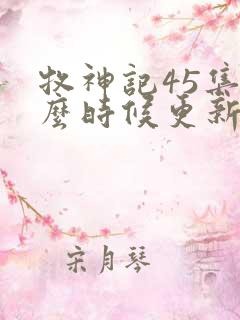 牧神記45集
麼時候更新
宋月琴